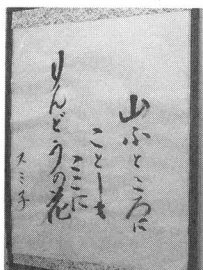 山ふところに
ことしも
ここに
りんどうの花
スミ子